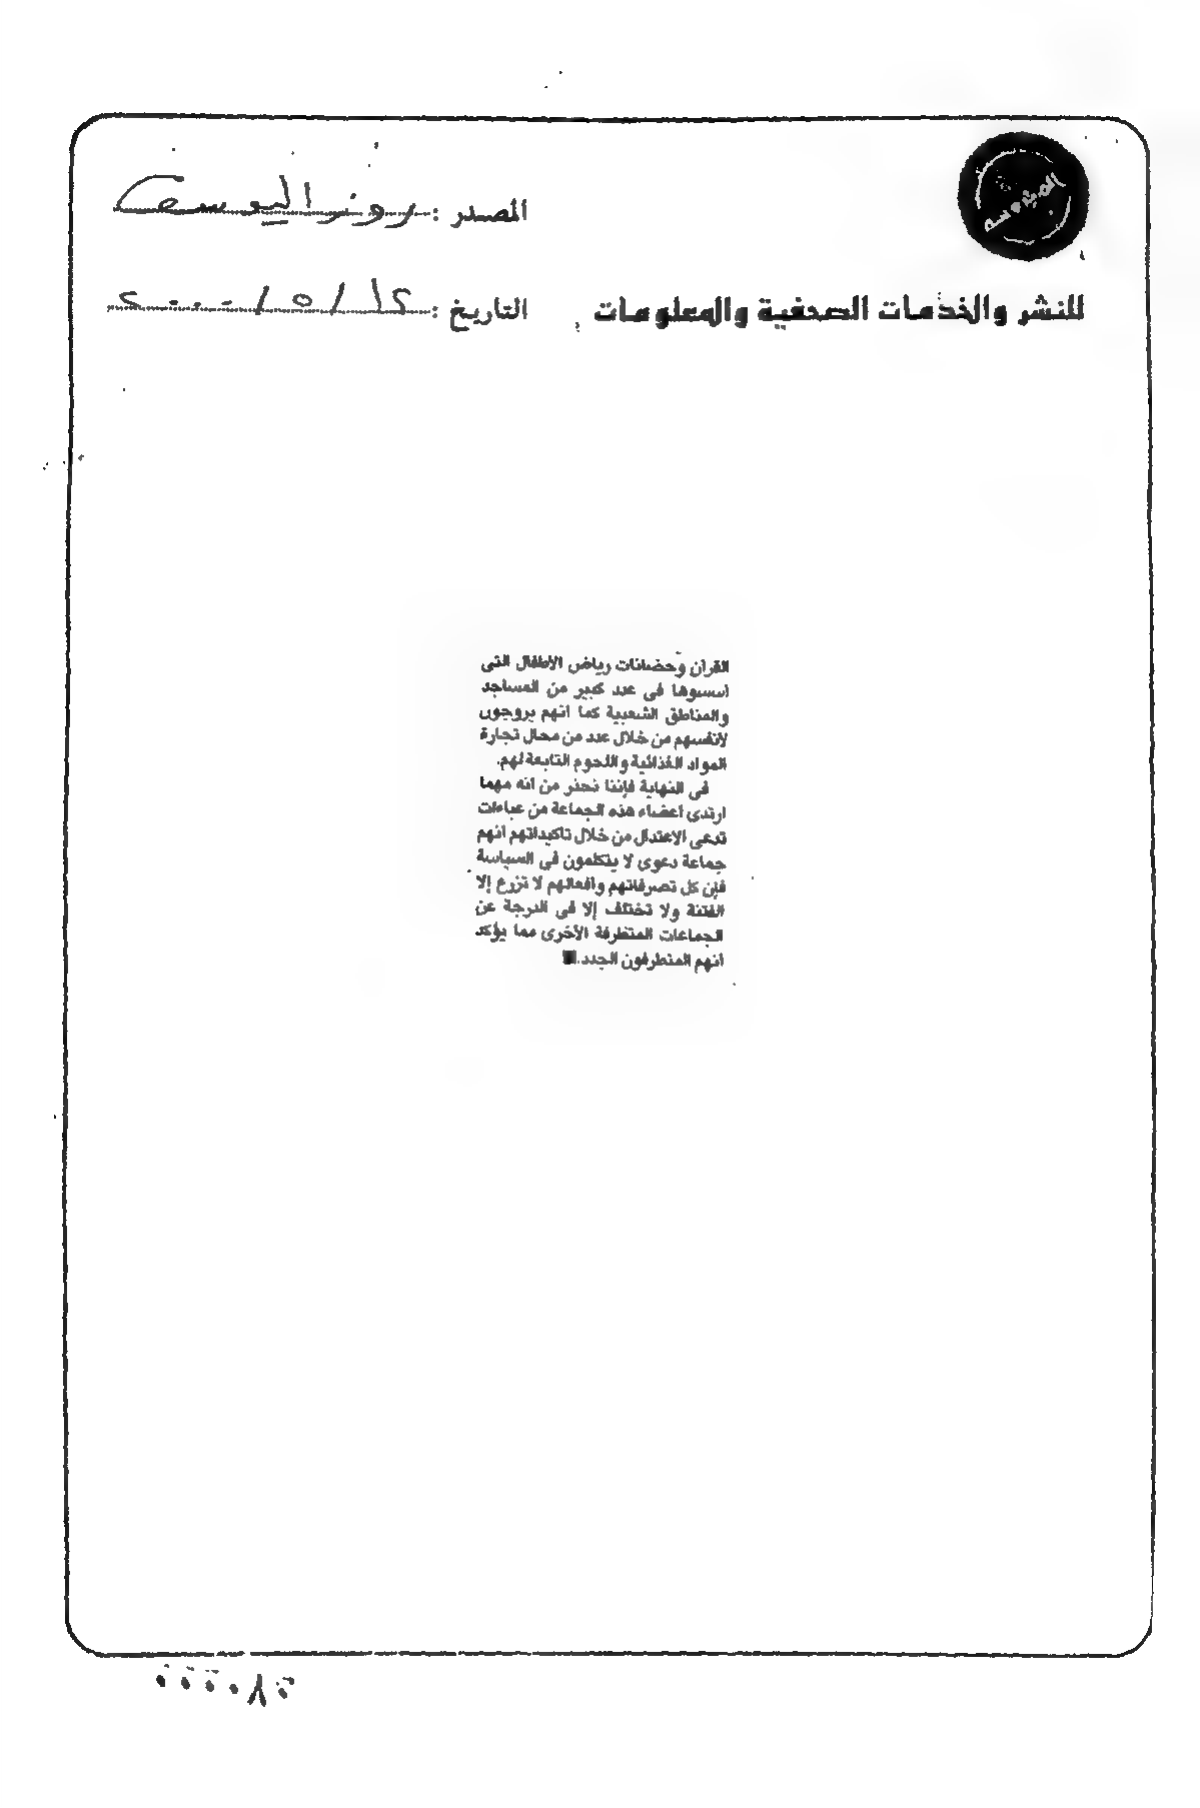 المصدر : روز اليوسف
للنشر والخدمات الصحفية والمعلومات
التاريخ :
القرآن وحضانات رياض الأطفال التى
أسسوها فى عدد كبير من المساجد
والمناطق الشعبية كما أنهم يروجون
لأنفسهم من خلال عدد من محال تجارة
المواد الغذائية واللحوم التابعة لهم.
فى النهاية فإننا نحذر من أنه مهما
ارتدى أعضاء هذه الجماعة من عباءات
تدعى الاعتدال من خلال تأكيداتهم أنهم
جماعة دعوى لا يتكلمون فى السياسة
فإن كل تصرفاتهم وأفعالهم لا تزرع إلا
الفتنة ولا تختلف إلا فى الدرجة عن
الجماعات المتطرفة الأخرى مما يؤكد
أنهم المتطرفون الجدد.